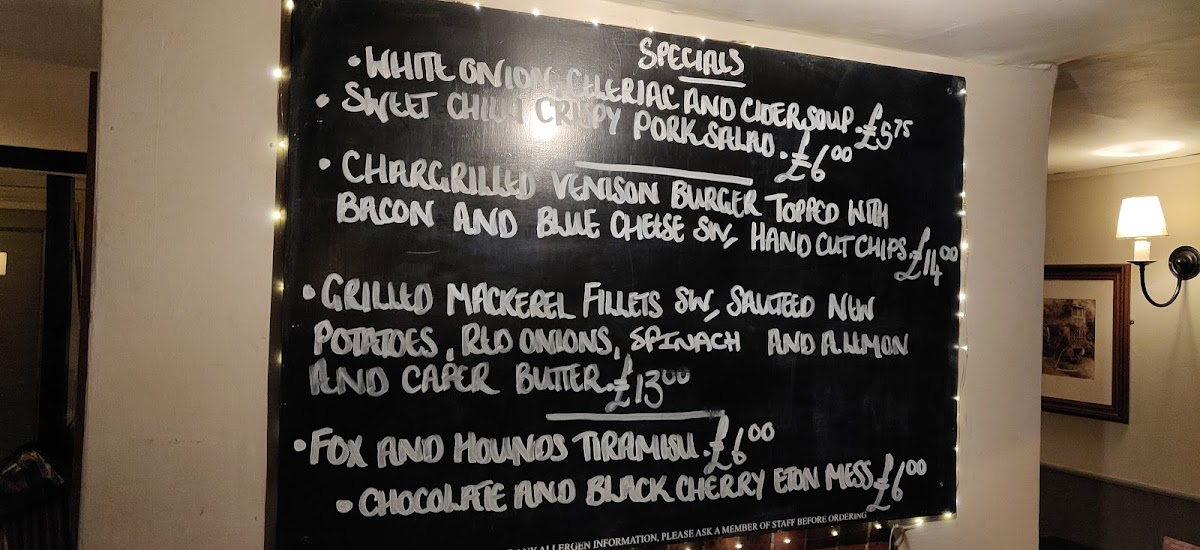 SPECIALS
• WHITE ONION CELERIAC AND CIDER SOUP. £5.75
• SWEET CHILLI CRISPY PORK SALAD. £6.00
• CHARGRILLED VENISON BURGER TOPPED WITH
BACON AND BLUE CHEESE S/W, HAND CUT CHIPS. £14.00
• GRILLED MACKEREL FILLETS S/W, SAUTEED NEW
POTATOES, RED ONIONS, SPINACH AND A LEMON
AND CAPER BUTTER. £13.00
• FOX AND HOUNDS TIRAMISU. £6.00
• CHOCOLATE AND BLACK CHERRY ETON MESS. £6.00
ALLERGEN INFORMATION, PLEASE ASK A MEMBER OF STAFF BEFORE ORDERING